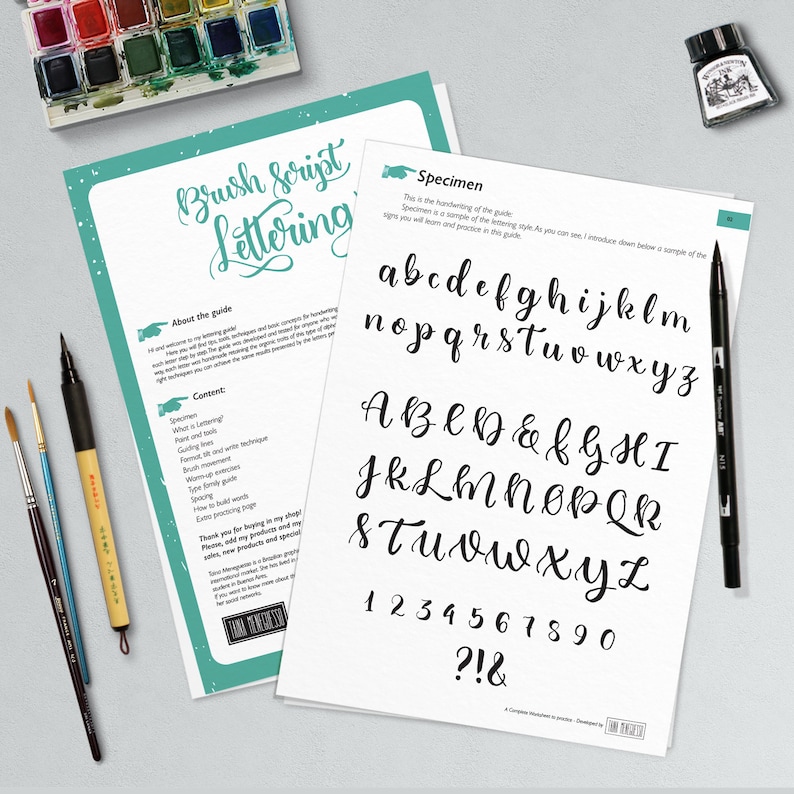 Brush Script
Lettering
About the guide
Hi and welcome to my lettering guide!
Here you will find tips, tools, techniques and basic concepts for handwriting
each letter step by step. The guide was developed and tested for anyone who
way, each letter was handmade retaining the organic traits of this type of
right techniques you can achieve the same results presented by the letters
Content:
Specimen
What is Lettering?
Paint and tools
Guiding lines
Format, tilt and write technique
Brush movement
Warm-up exercises
Type family guide
Spacing
How to build words
Extra practicing page
Thank you for buying in my shop!
Please, add my products and my
sales, new products and special
Taina Meneguesso is a Brazilian
international market. She has lived in
student in Buenos Aires.
If you want to know more about
her social networks.
TAINA MENEGUESSO
Specimen
02
This is the handwriting of the guide:
Specimen is a sample of the lettering style. As you can see, I introduce down below a sample of the
signs you will learn and practice in this guide.
a b c d e f g h i j k l m
n o p q r s t u v w x y z
A B C D E F G H I
J K L M N O P Q R
S T U V W X Y Z
1 2 3 4 5 6 7 8 9 0
?!&
A Complete Worksheet to practice - Developed by
TAINA MENEGUESSO
WINSOR & NEWTON
INK
Tombow ABT
N15